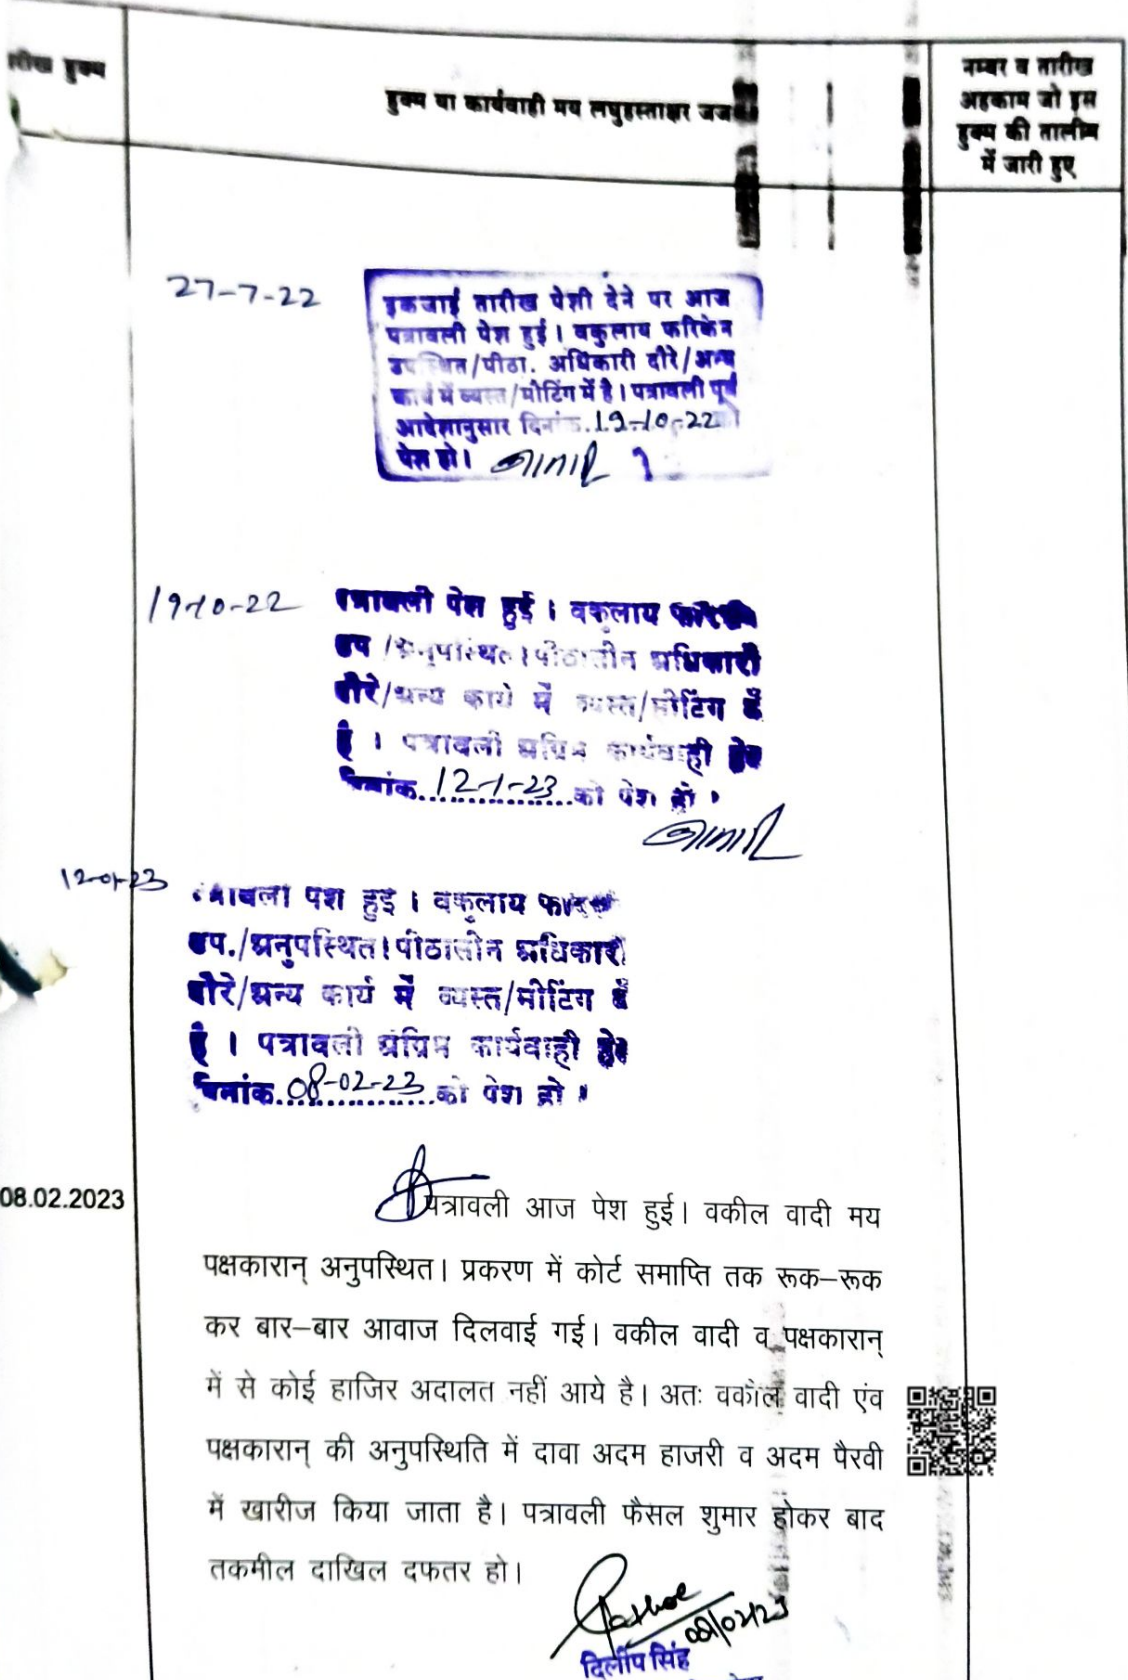 तारीख हुक्म
हुक्म या कार्यवाही मय लघुहस्ताक्षर जज
नम्बर व तारीख
अहकाम जो इस
हुक्म की तालीम
में जारी हुए
27-7-22
इकजाई तारीख पेशी देने पर आज
पत्रावली पेश हुई। वकुलाय फरिकेन
उपस्थित/पीठा. अधिकारी दौरे/अन्य
कार्य में व्यस्त/मीटिंग में है। पत्रावली पूर्व
आदेशानुसार दिनांक.19-10-22 को
पेश हो।
19-10-22
पत्रावली पेश हुई। वकुलाय
उप/अनुपस्थित।पीठासीन अधिकारी
दौरे/अन्य कार्य में व्यस्त/मीटिंग में
है। पत्रावली अग्रिम कार्यवाही हेतु
दिनांक..12-1-23..को पेश हो।
12-01-23
पत्रावली पेश हुई। वकुलाय
उप./अनुपस्थित।पीठासीन अधिकारी
दौरे/अन्य कार्य में व्यस्त/मीटिंग में
है। पत्रावली अग्रिम कार्यवाही हेतु
दिनांक..08-02-23..को पेश हो।
08.02.2023
पत्रावली आज पेश हुई। वकील वादी मय
पक्षकारान् अनुपस्थित। प्रकरण में कोर्ट समाप्ति तक रूक–रूक
कर बार–बार आवाज दिलवाई गई। वकील वादी व पक्षकारान्
में से कोई हाजिर अदालत नहीं आये है। अतः वकील वादी एंव
पक्षकारान् की अनुपस्थिति में दावा अदम हाजरी व अदम पैरवी
में खारीज किया जाता है। पत्रावली फैसल शुमार होकर बाद
तकमील दाखिल दफतर हो।
08/02/23
दिलीप सिंह